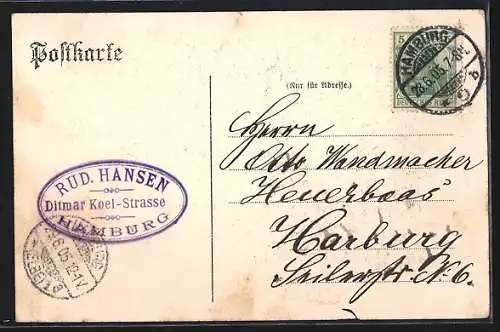 Postkarte
(Nur für Adresse.)
5
HAMBURG
28.6.05. 7-8N.
Herrn
Otto Wandmacher
Heuerbaas
Harburg
Seilerstr. N. 6.
RUD. HANSEN
Ditmar Koel-Strasse
HAMBURG
6.05.12-1V
(ELBE)1